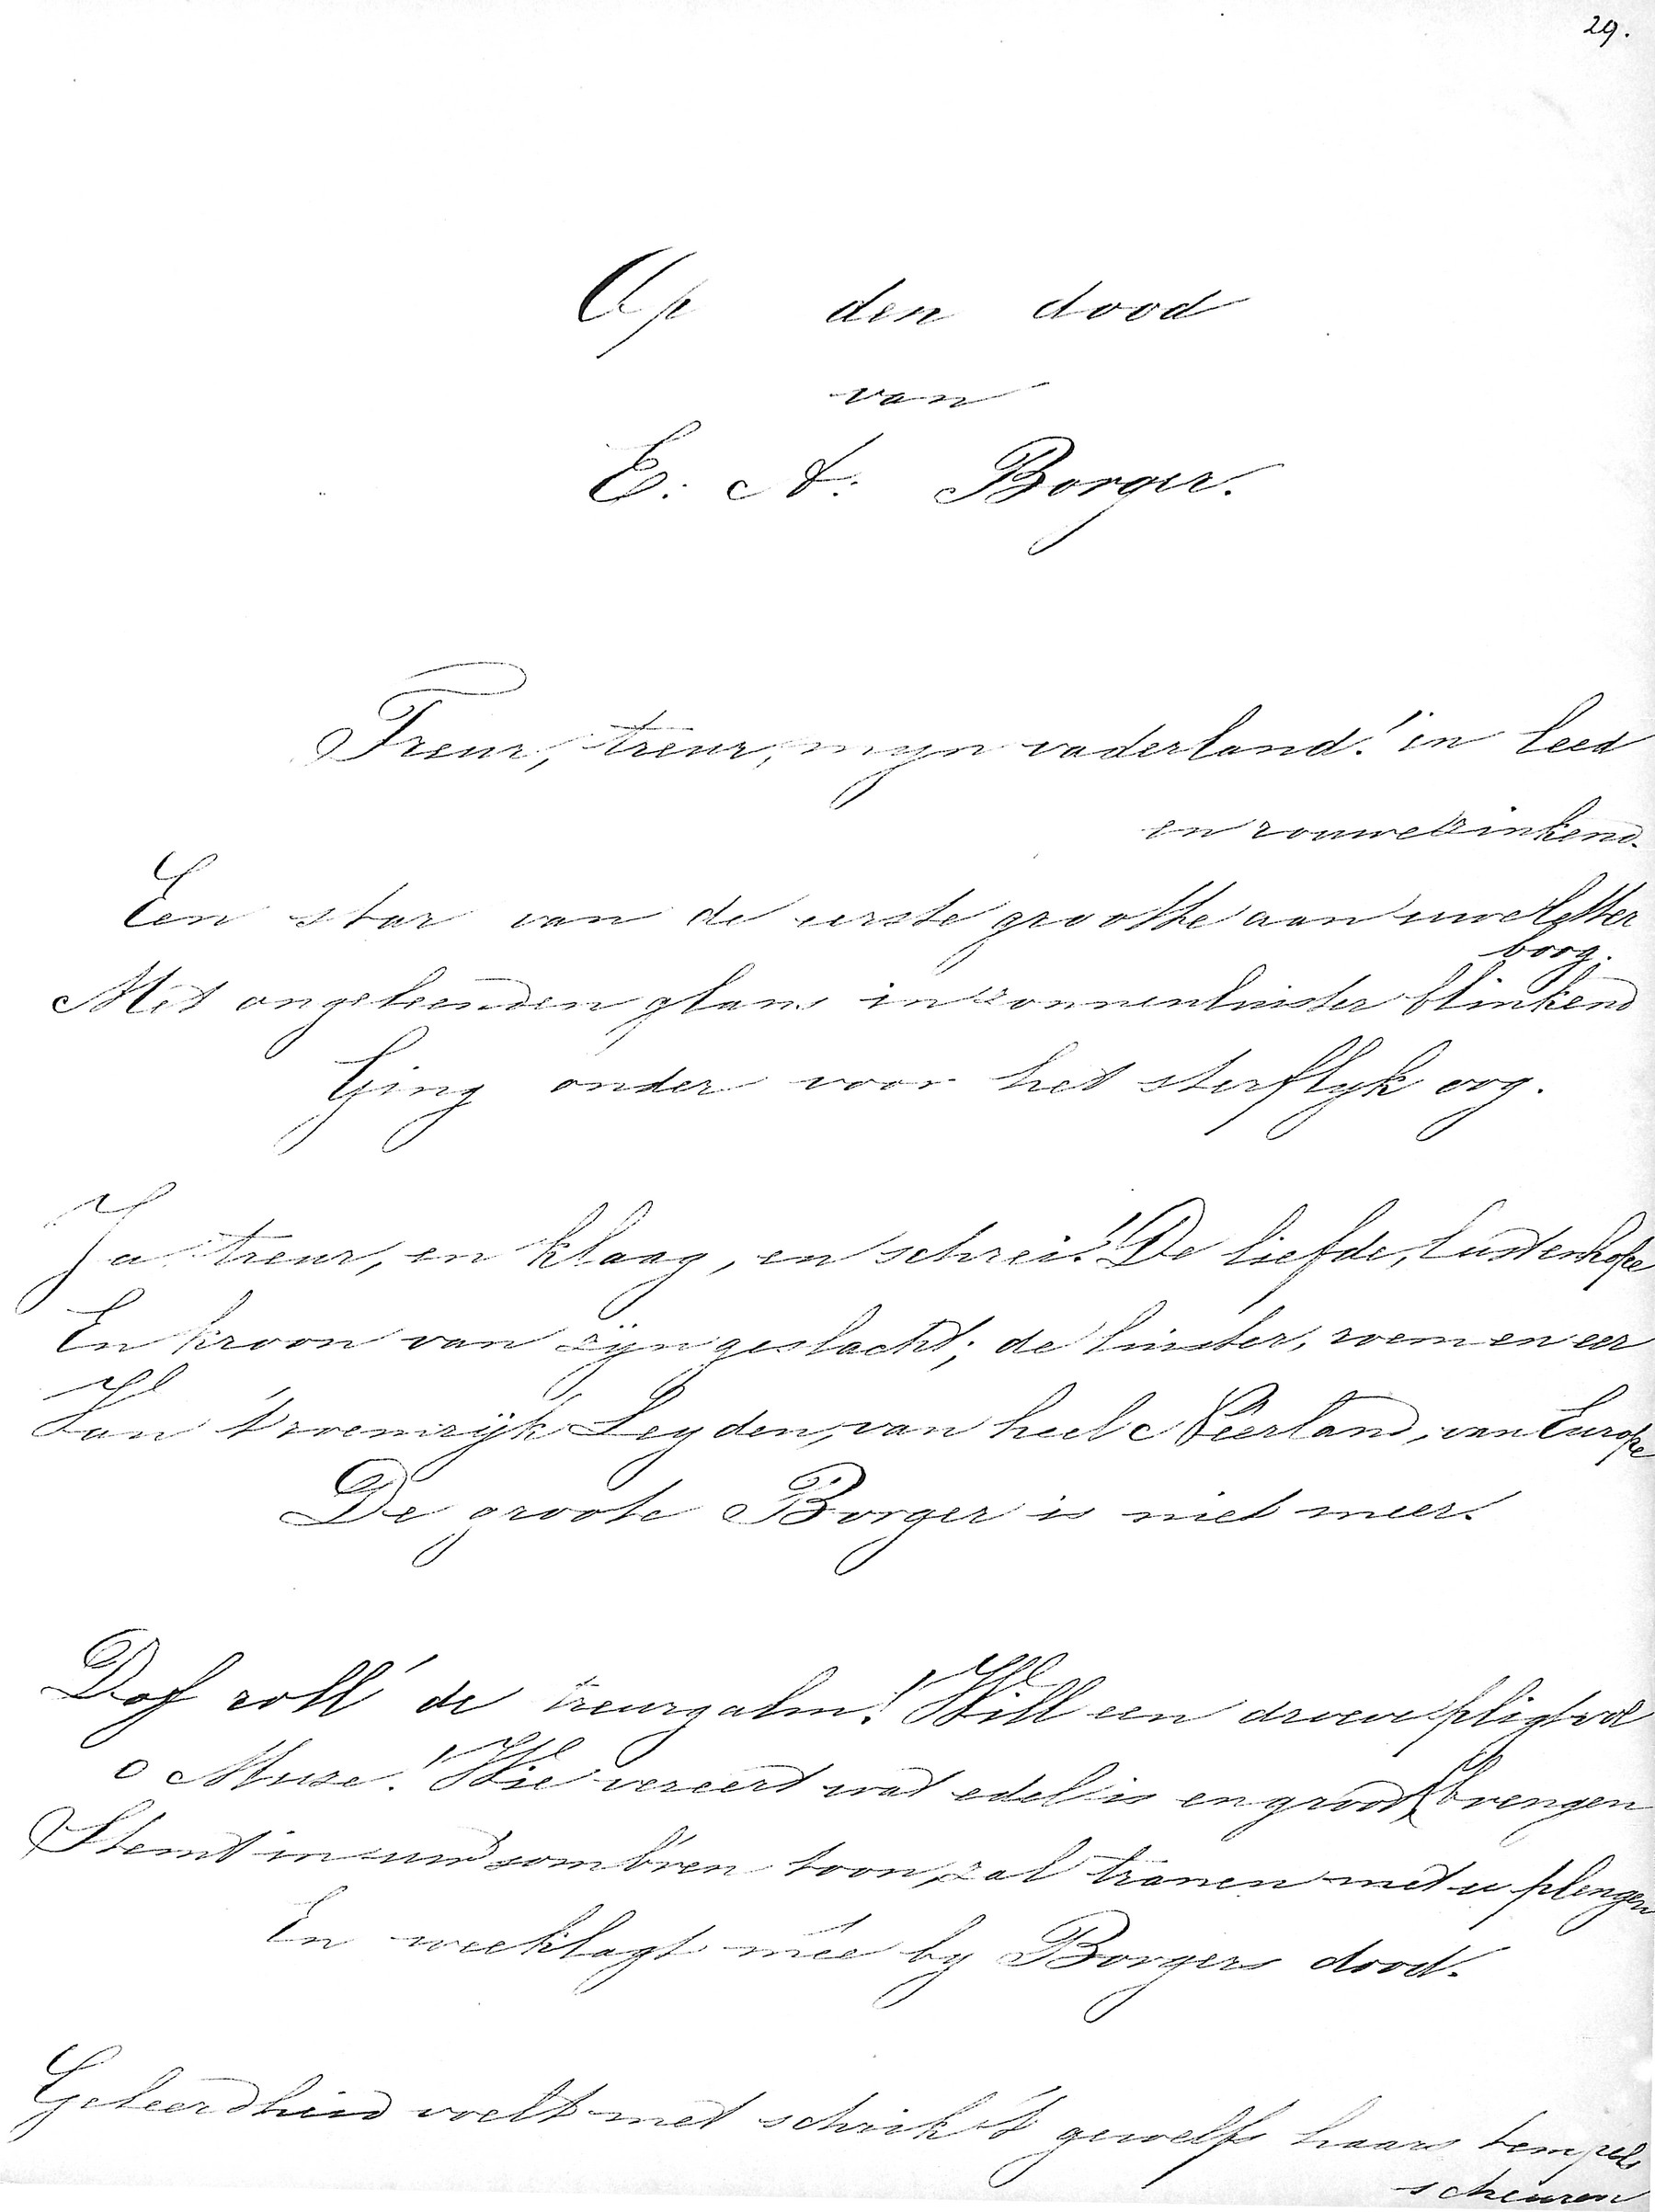 29.
Op den dood
van
E. A. Borger.
Treur, treur, myn vaderland! in leed
en rouwe zinkend.
Een star van de eerste grootte aan uw letter
boog.
Met ongeleenden glans in zonnenluister blinkend
Ging onder voor het sterflyk oog.
Ja treur, en klaag, en schrei! De liefde, lust en hope
En kroon van zyn geslacht; de luister, roem en eer
Van 't roemryk Leyden, van heel Neerland, van Europe
De groote Borger is niet meer.
Dof roll' de treurgalm! Will een droeve pligt vol
o Muse! Wie vereert wat edel is en groot (brengen
Stemt in uw somb'ren toon, zal tranen met u plengen
En weeklagt meê by Borgers dood.
Geleerdheid voelt met schrik 't gewelf haars tempels
scheuren